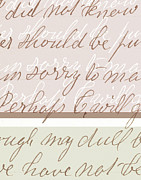 did not know
er should be pu
in sorry to ma
Perhaps I will g
ough my dull b
ve have not be